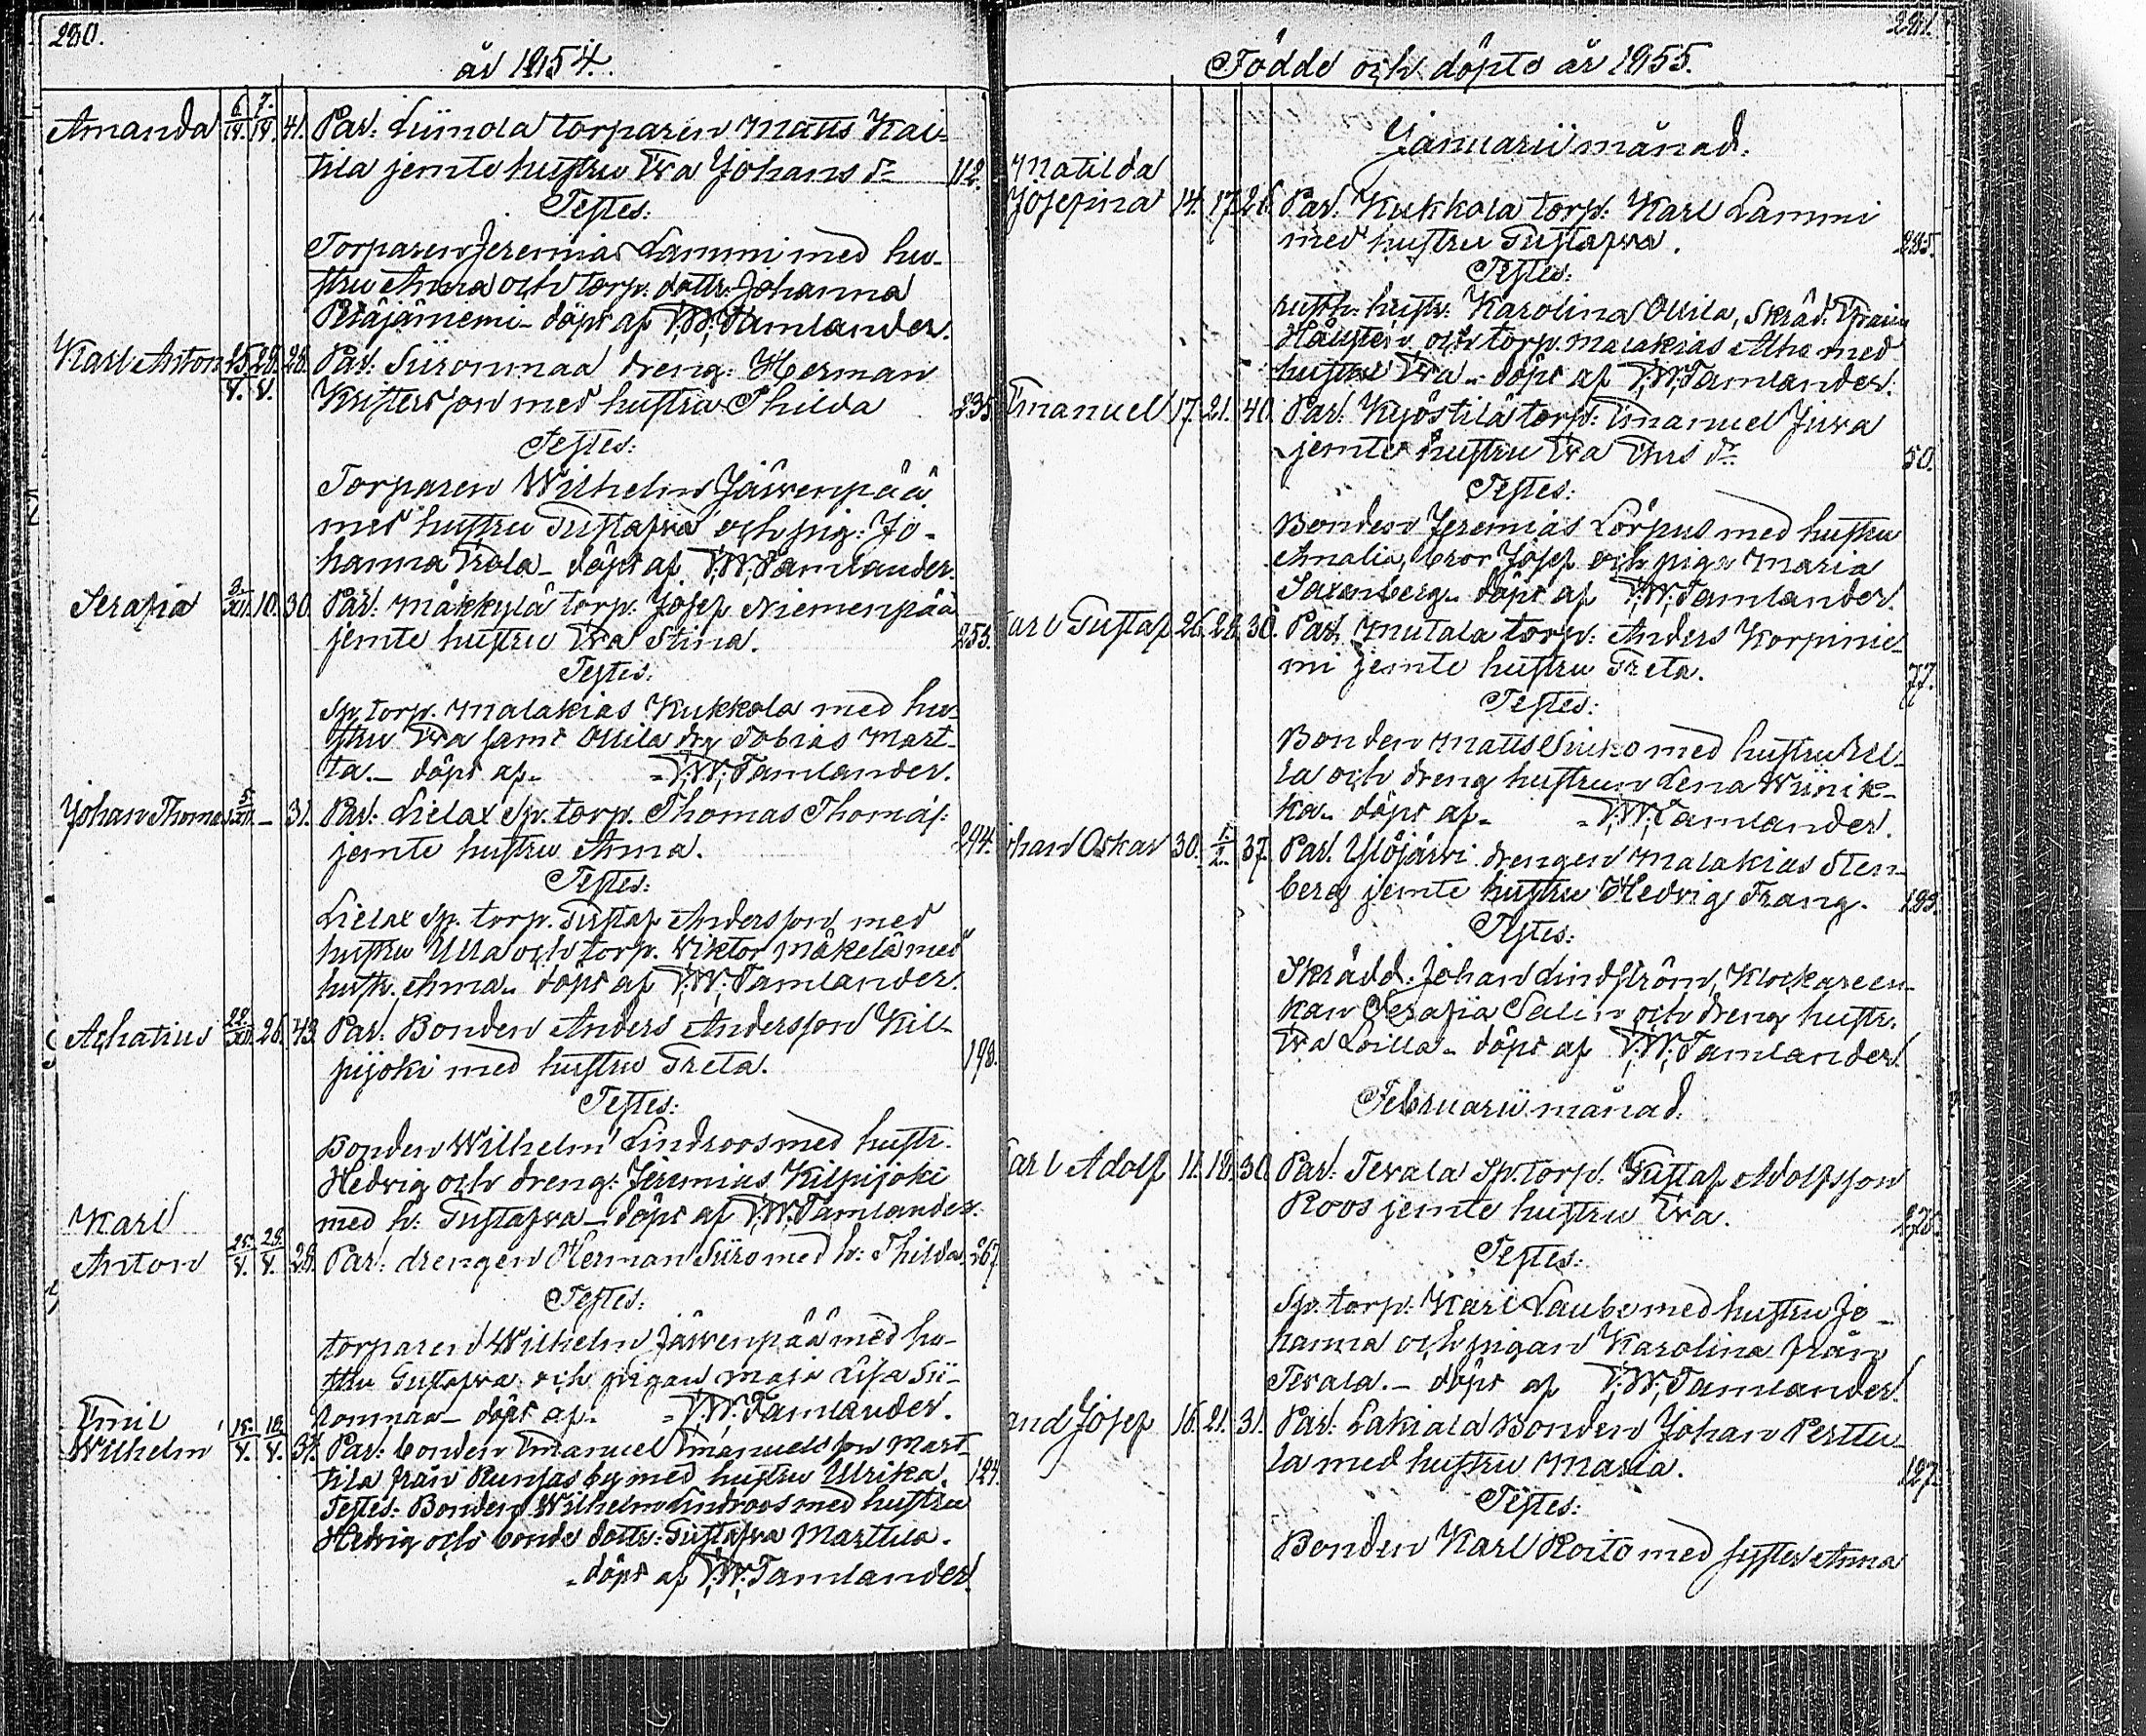 280.
år 1854.
Amanda 6/IV. 7./IV. 41. Par: Liimola torparen Matts Kai-
tila jemte hustru Eva Johans dr 112.
Testes:
Torparen Jeremias Lammi med hu-
stru Anna och torp. dottr: Johanna
Peräjäniemi - döpt af F: W: Tamlander.
Karl Anton 25/V. 28./V. 28. Par: Siironmaa dreng: Herman
Kristersson med hustru Thilda 235.
Testes:
Torparen Wilhelm Järvenpää
med hustru Gustafva och pig: Jo-
hanna Erola - döpt af F: W: Tamlander.
Serafia 3/XII. 10. 30. Par: Mäkkylä torp: Josef Niemenpää
jemte hustru Eva Stina. 253.
Testes:
Sp. torp. Malakias Kukkola med hu-
stru Eva samt Ollila drg Tobias Mart-
ta. - döpt af - F: W: Tamlander.
Johan Thomas 5/XII. - 31. Par: Lielax Sp. torp. Thomas Thomas:
jemte hustru Anna. 244.
Testes:
Lielax Sp. torp. Gustaf Andersson med
hustru Ulla och torp. Viktor Mäkelä med
hustr. Anna - döpt af F: W: Tamlander.
Achatius 22/XII. 26. 43. Par: Bonden Anders Andersson Kil-
pijoki med hustru Greta. 198.
Testes:
Bonden Wilhelm Lindroos med hustr.
Hedvig och dreng: Jeremias Kilpijoki
med h: Gustafva - döpt af F: W: Tamlander.
Karl
Anton 25./V. 28./V. 28. Par: drengen Herman Siiro med h: Thilda 267
Testes:
torparen Wilhelm Järvenpää med hu-
stru Gustafva och pigan Maja Lisa Sii-
ronmaa - döpt af - F: W: Tamlander.
Emil
Wilhelm 15./V. 18./V. 37. Par: bonden Emanuel Emanuelsson Mart-
tila från Runsas by med hustru Ulrika. 124.
Testes: Bonden Wilhelm Lindroos med hustru
Hedvig och bonde dottr: Gustafva Marttila.
- döpt af F: W: Tamlander.
281.
Födde och döpte år 1855.
Januarii månad.
Matilda
Josefina 14. 17. 26. Par: Kukkola torp: Karl Lammi
med hustru Gustafva. 285.
Testes:
hustr: Karolina Ollila, Skräd:
och torp. Malakias Aho med
hustru Eva - döpt af F: W: Tamlander.
Emanuel 17. 21. 40. Par: Kyöstilä torp: Emanuel Juva
jemte hustru Eva dr 50.
Testes:
Bonden Jeremias Lörpus med hustru
Amalia, bror Josef och piga Maria
Saxenberg - döpt af F: W: Tamlander.
arl Gustaf 26. 28. 30. Par: Mutala torp: Anders Korpinie-
mi jemte hustru Greta. 77.
Testes:
Bonden Matts Siuko med hustru Ul-
la och dreng hustrun Lena Wiinik-
ka - döpt af - F: W: Tamlander.
ohan Oskar 30. 1./2. 37. Par: Ylöjärvi drengen Malakias Sten-
berg jemte hustru Hedvig Frang. 193.
Testes:
Skrädd: Johan Lindström, Klockareen-
kan Serafia Salin och dreng hustr.
Eva Loilla - döpt af F: W: Tamlander.
Februarii månad.
arl Adolf 11. 18. 30. Par: Tevala Sp. torp: Gustaf Adolfsson
Roos jemte hustru Eva. 275.
Testes:
Sp. torp: Karl Laube med hustru Jo-
hanna och pigan Karolina från
Tevala. - döpt af F: W: Tamlander.
and Josef 16. 21. 31. Par: Lakiala Bonden Johan Perttu-
la med hustru Maria. 127.
Testes:
Bonden Karl Roito med syster Anna